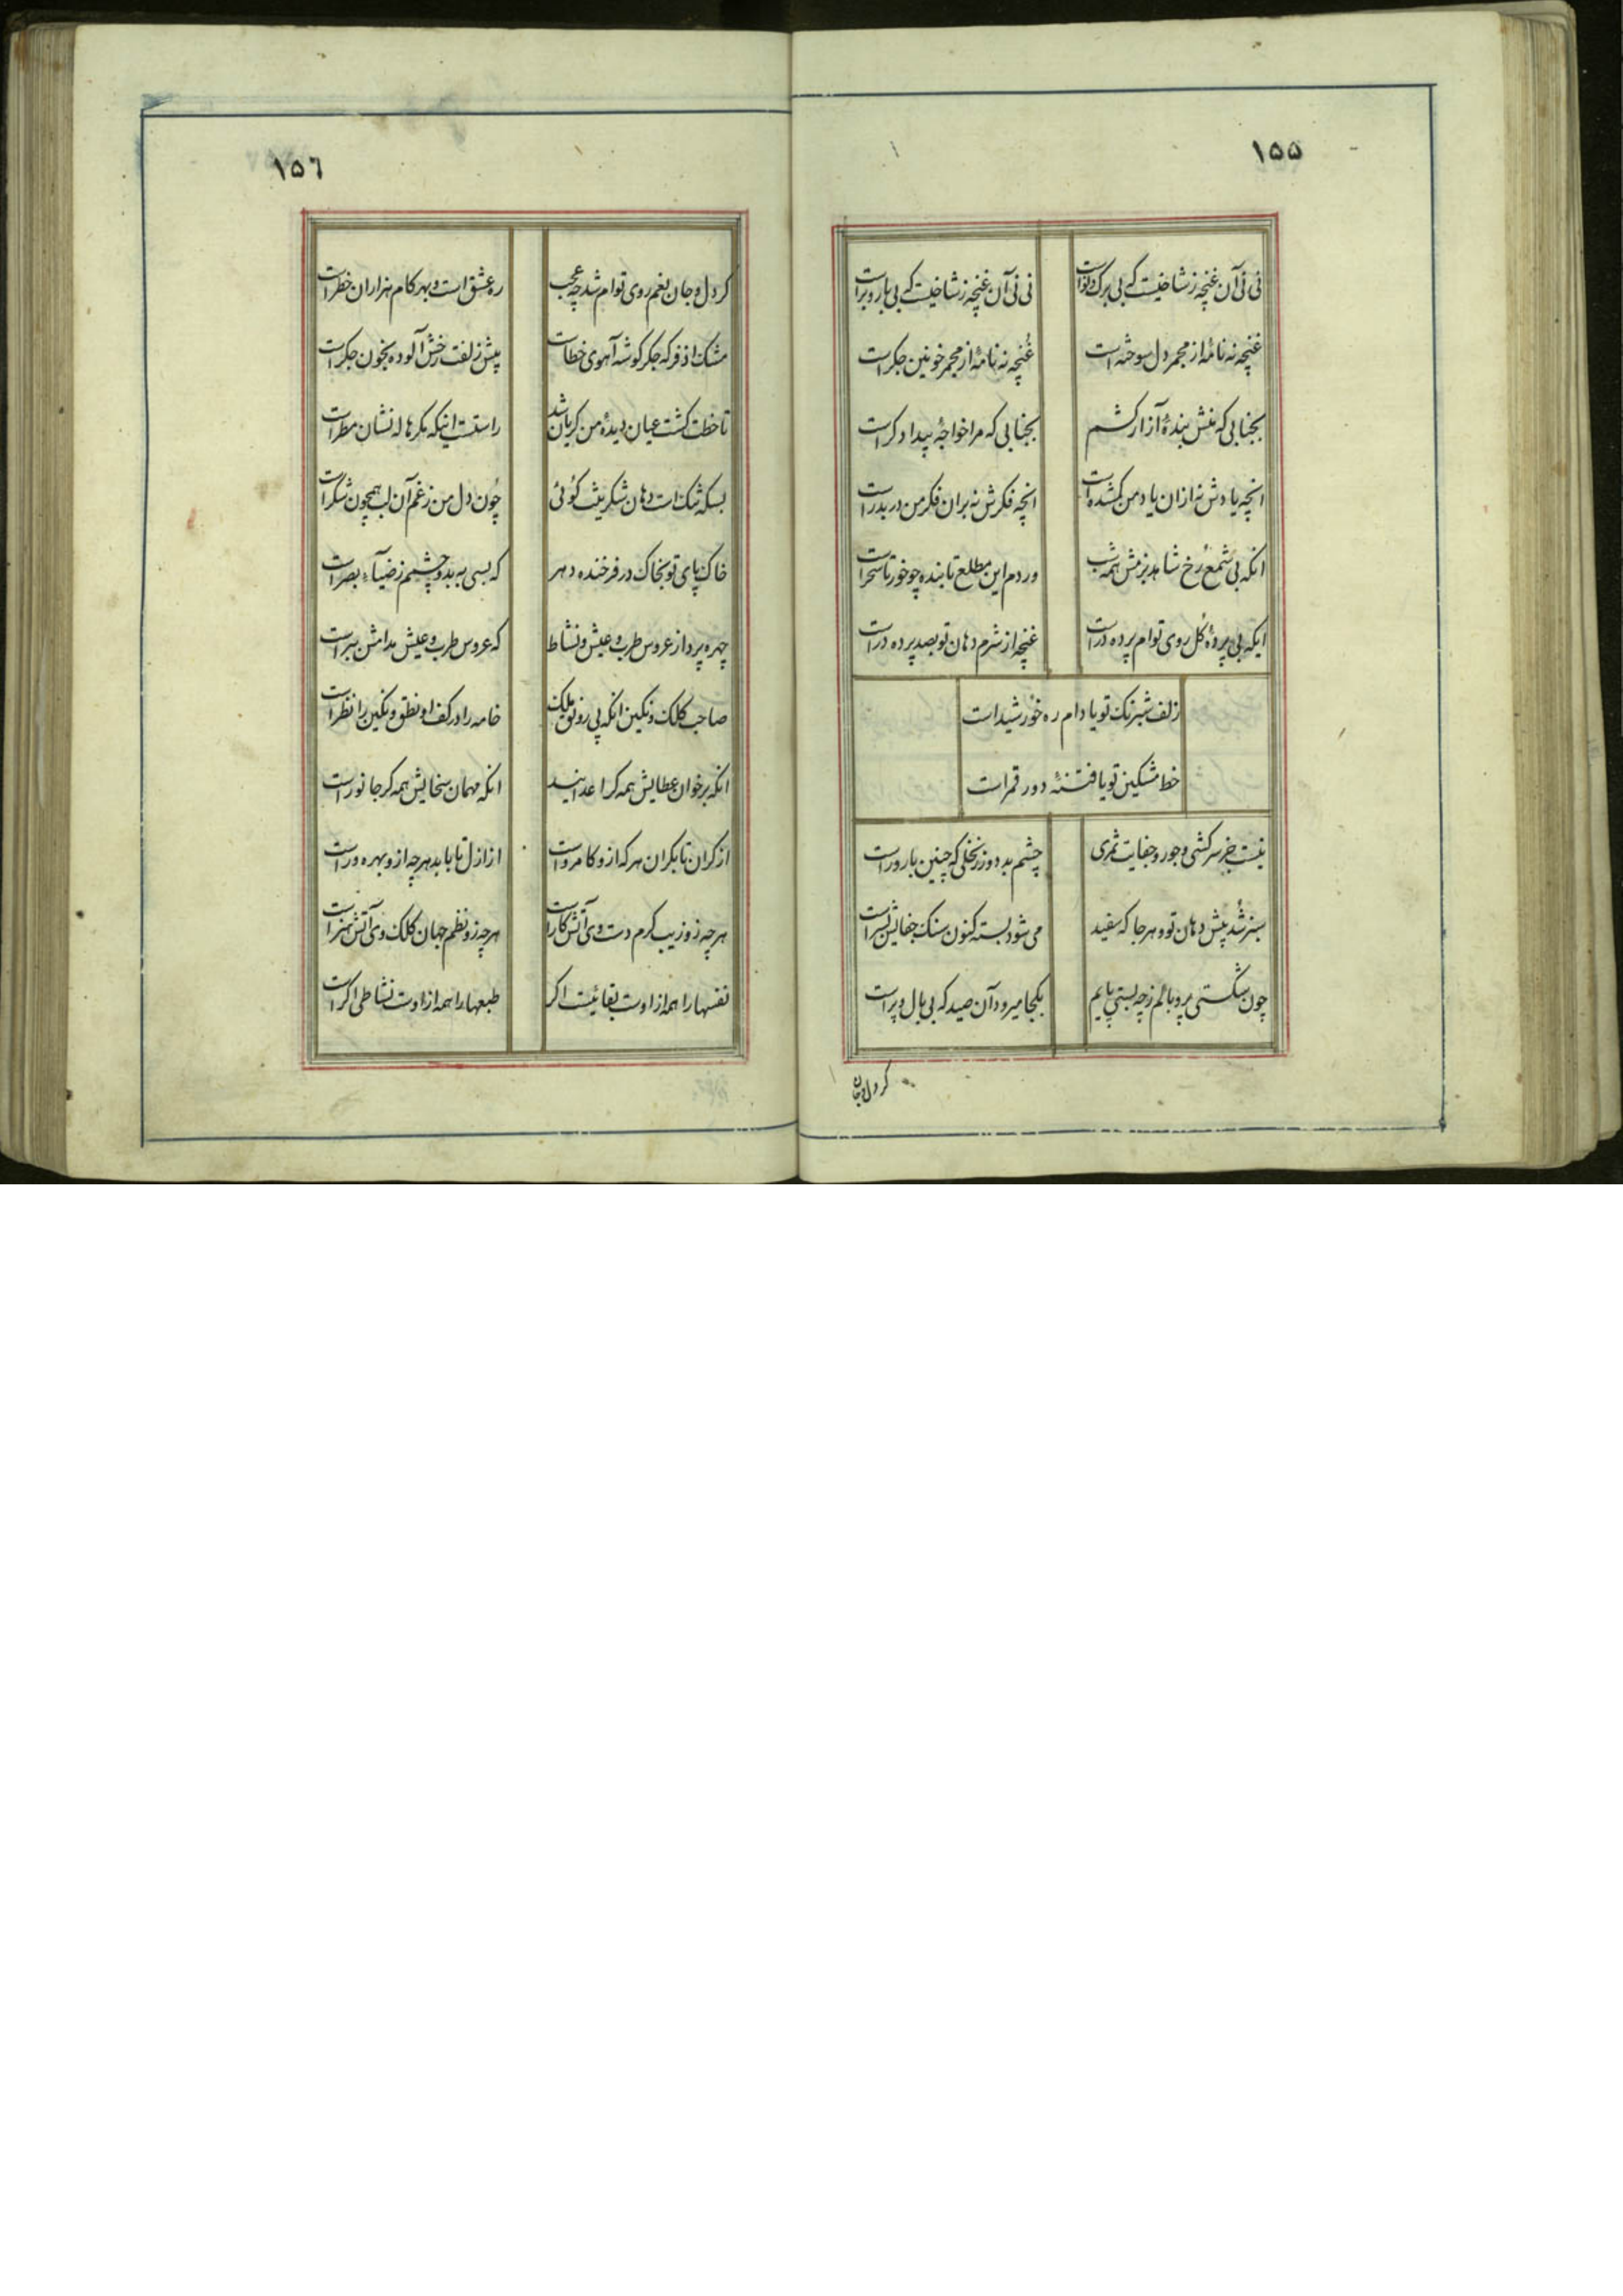 ۱۵۵
نی نی آن غنچه ز شاخیست که بی برک و نوا است
نی نی آن غنچه ز شاخیست که بی بار و بر است
غنچه نه نامهٔ از مجمر دل سوخته است
غنچه نه نامهٔ از مجمر خونین جکر است
بجنابی که منش بندهٔ آزار کشم
بجنابی که مرا خواجهٔ بیداد کر است
انچه یادش نه ازان یاد من کمشده است
انچه فکرش نه بران فکر من در بدر است
انکه بی شمع رخ شاهد بزمش همه شب
وردم این مطلع تابنده چو خور تا سحر است
ایکه بی پردهٔ کل روی توام پرده در است
غنچه از شرم دهان تو بصد پرده در است
زلف شبرنک تو یا دام ره خورشید است
خط مشکین تو یا فتنهٔ دور قمر است
نیست جز سرکشی و جور و جفایت ثمری
چشم بد دور ز نخلی که چنین بارور است
سبز شد پیش دهان تو و هر جا که سفید
می شود بسته کنون سنک جفایش بسر است
چون شکستی پر و بالم ز چه بستی پایم
بکجا میرود آن صید که بی بال و پر است
کر دل و جان
۱۵٦
کر دل و جان بغم روی توام شد چه عجب
ره عشق است و بهر کام هزاران خطر است
مشک اذفر که جکر کوشه آهوی خطاست
پیش زلفت رخش آلوده بخون جکر است
تا خطت کشت عیان دیدهٔ من کریان شد
راستست اینکه مکر هاله نشان مطر است
بسکه تنک است دهان شکرینت کوئی
چون دل من ز غم آن لب همچون شکر است
خاک پای تو بخاک در فرخنده دهر
که بسی به بدو چشمم ز ضیآء بصر است
چهره پرداز عروس طرب و عیش و نشاط
که عروس طرب و عیش مدامش ببر است
صاحب کلک و نکین انکه پی رونق ملک
خامه را در کف او نطق و نکین را نظر است
انکه بر خوان عطایش همه کر اعدایند
انکه مهمان سخایش همه کر جانور است
از کران تا بکران هر که ازو کامرواست
از ازل تا بابد هر چه ازو بهره ور است
هر چه زو زیب کرم دست وی آتش کار است
هر چه زو نظم جهان کلک وی آتش هنر است
نفسها را همه از اوست بقائیست اکر
طبعها را همه از اوست نشاطی اکر است